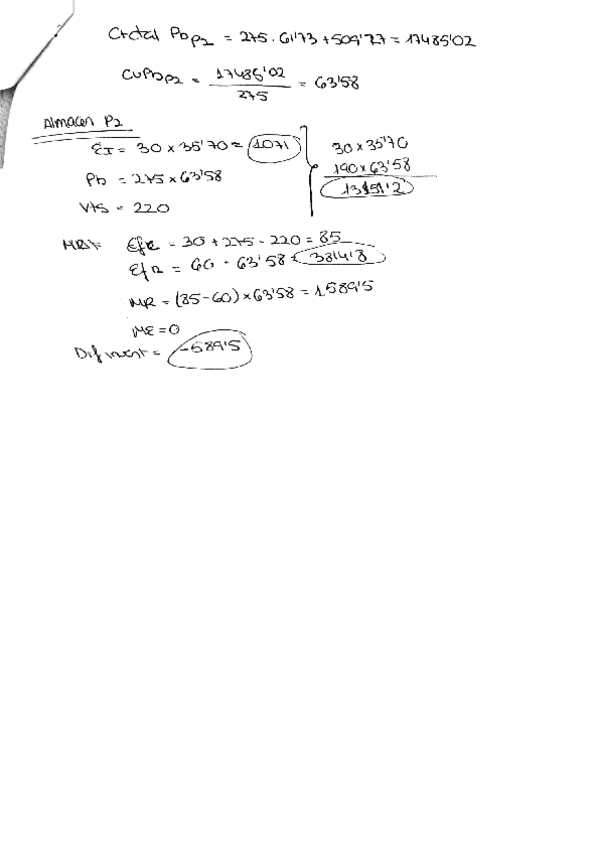 Ctotal Pb P2 = 275 · 61'73 + 509'27 = 17485'02
CuPb P2 = 17485'02 / 275 = 63'58
Almacen P2
EI = 30 x 35'70 = 1071
30 x 35'70
Pb = 275 x 63'58
190 x 63'58
13151'2
Vts = 220
Efte = 30 + 275 - 220 = 85
EfR = 60 · 63'58 = 3814'8
MR = (85-60) x 63'58 = 1589'5
ME = 0
Dif invent = -589'5